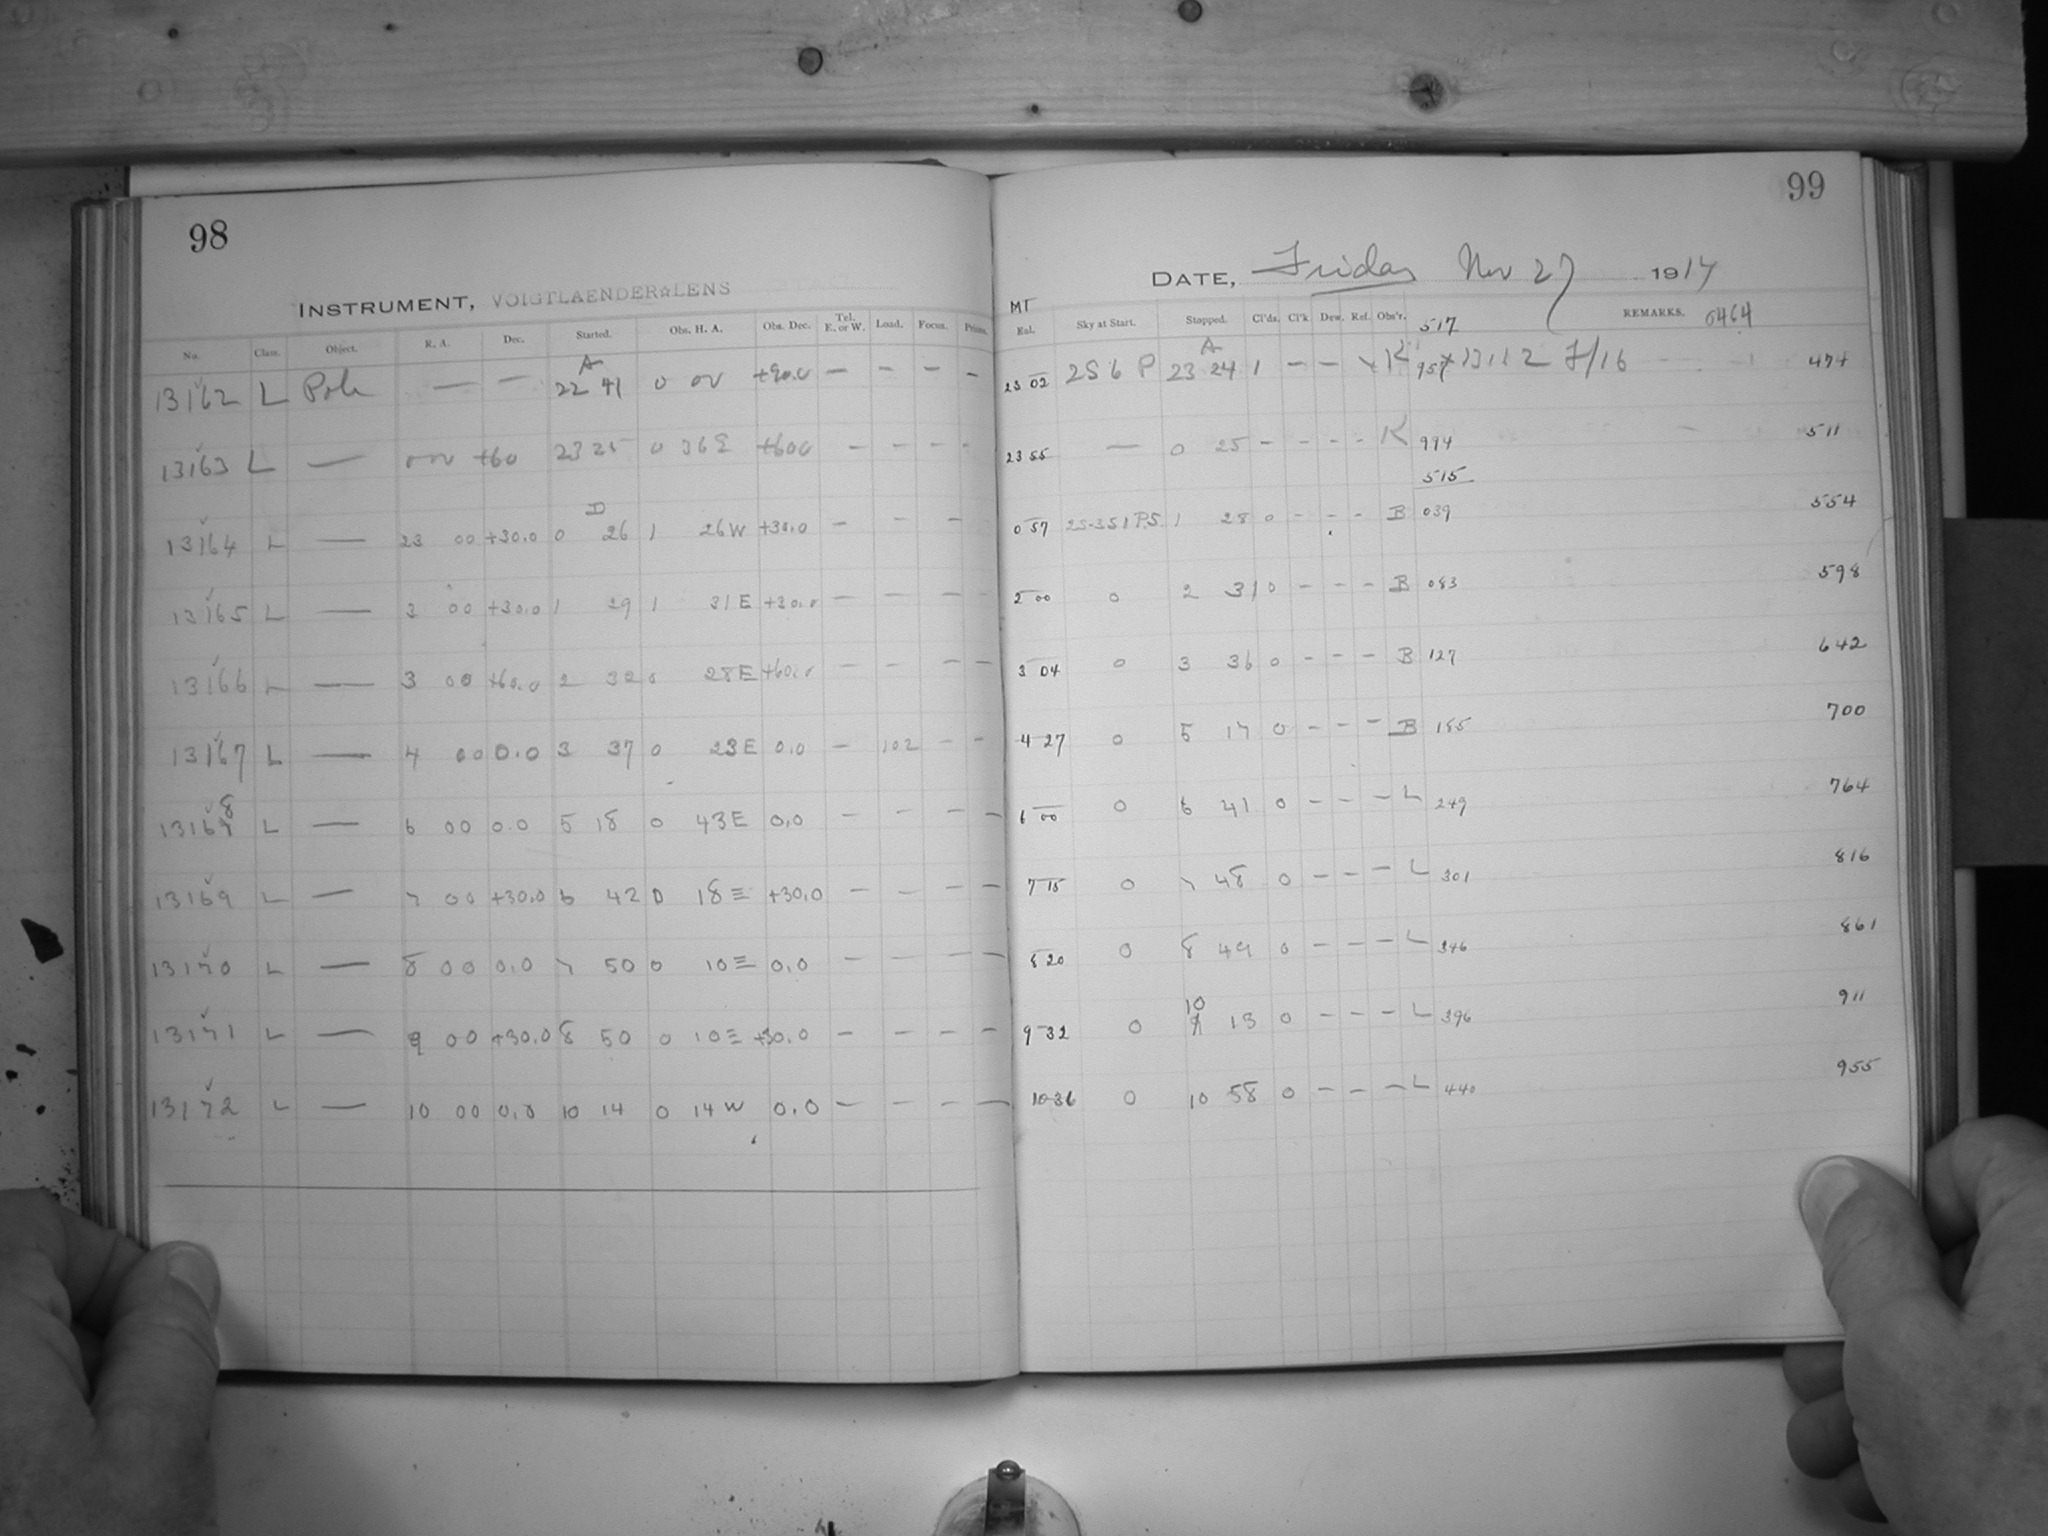 98
INSTRUMENT, VOIGTLAENDER LENS
No. Class. Object. R. A. Dec. Started. Obs. H. A. Obs. Dec. Tel. E. or W. Load. Focus. Prisms.
A
13162 L Pole — — 22 41 0 00 +90.0 — — — —
13163 L — 0 00 +60 23 25 0 36 E +60.0 — — — —
D
13164 L — 23 00 +30.0 0 26 1 26 W +30.0 — — —
13165 L — 3 00 +30.0 1 29 1 31 E +30.0 — — — —
13166 L — 3 00 +60.0 2 32 0 28 E +60.0 — — — —
13167 L — 4 00 0.0 3 37 0 23 E 0.0 — 102 — —
8
13169 L — 6 00 0.0 5 18 0 43 E 0.0 — — — —
13169 L — 7 00 +30.0 6 42 0 18 E +30.0 — — — —
13170 L — 8 00 0.0 7 50 0 10 E 0.0 — — — —
13171 L — 9 00 +30.0 8 50 0 10 E +30.0 — — — —
13172 L — 10 00 0.0 10 14 0 14 W 0.0 — — — —
99
DATE, Friday Nov 27 1914
MT
Sky at Start. Stopped. Cl'ds. Cl'k Dew. Ref. Obs'r. REMARKS. 0464
517
A
23 02 2S 6 P 23 24 1 — — K 957 13112 F/16 474
23 55 — 0 25 — — — — K 994 511
515
0 57 2S-3S1 P.S. 1 28 0 — — — B 039 554
2 00 0 2 31 0 — — — B 083 598
3 04 0 3 36 0 — — — B 127 642
4 27 0 5 17 0 — — — B 185 700
6 00 0 6 41 0 — — — L 249 764
7 15 0 7 48 0 — — — L 301 816
8 20 0 8 49 0 — — — L 346 861
10
9 32 0 9 13 0 — — — L 396 911
10 36 0 10 58 0 — — — L 440 955